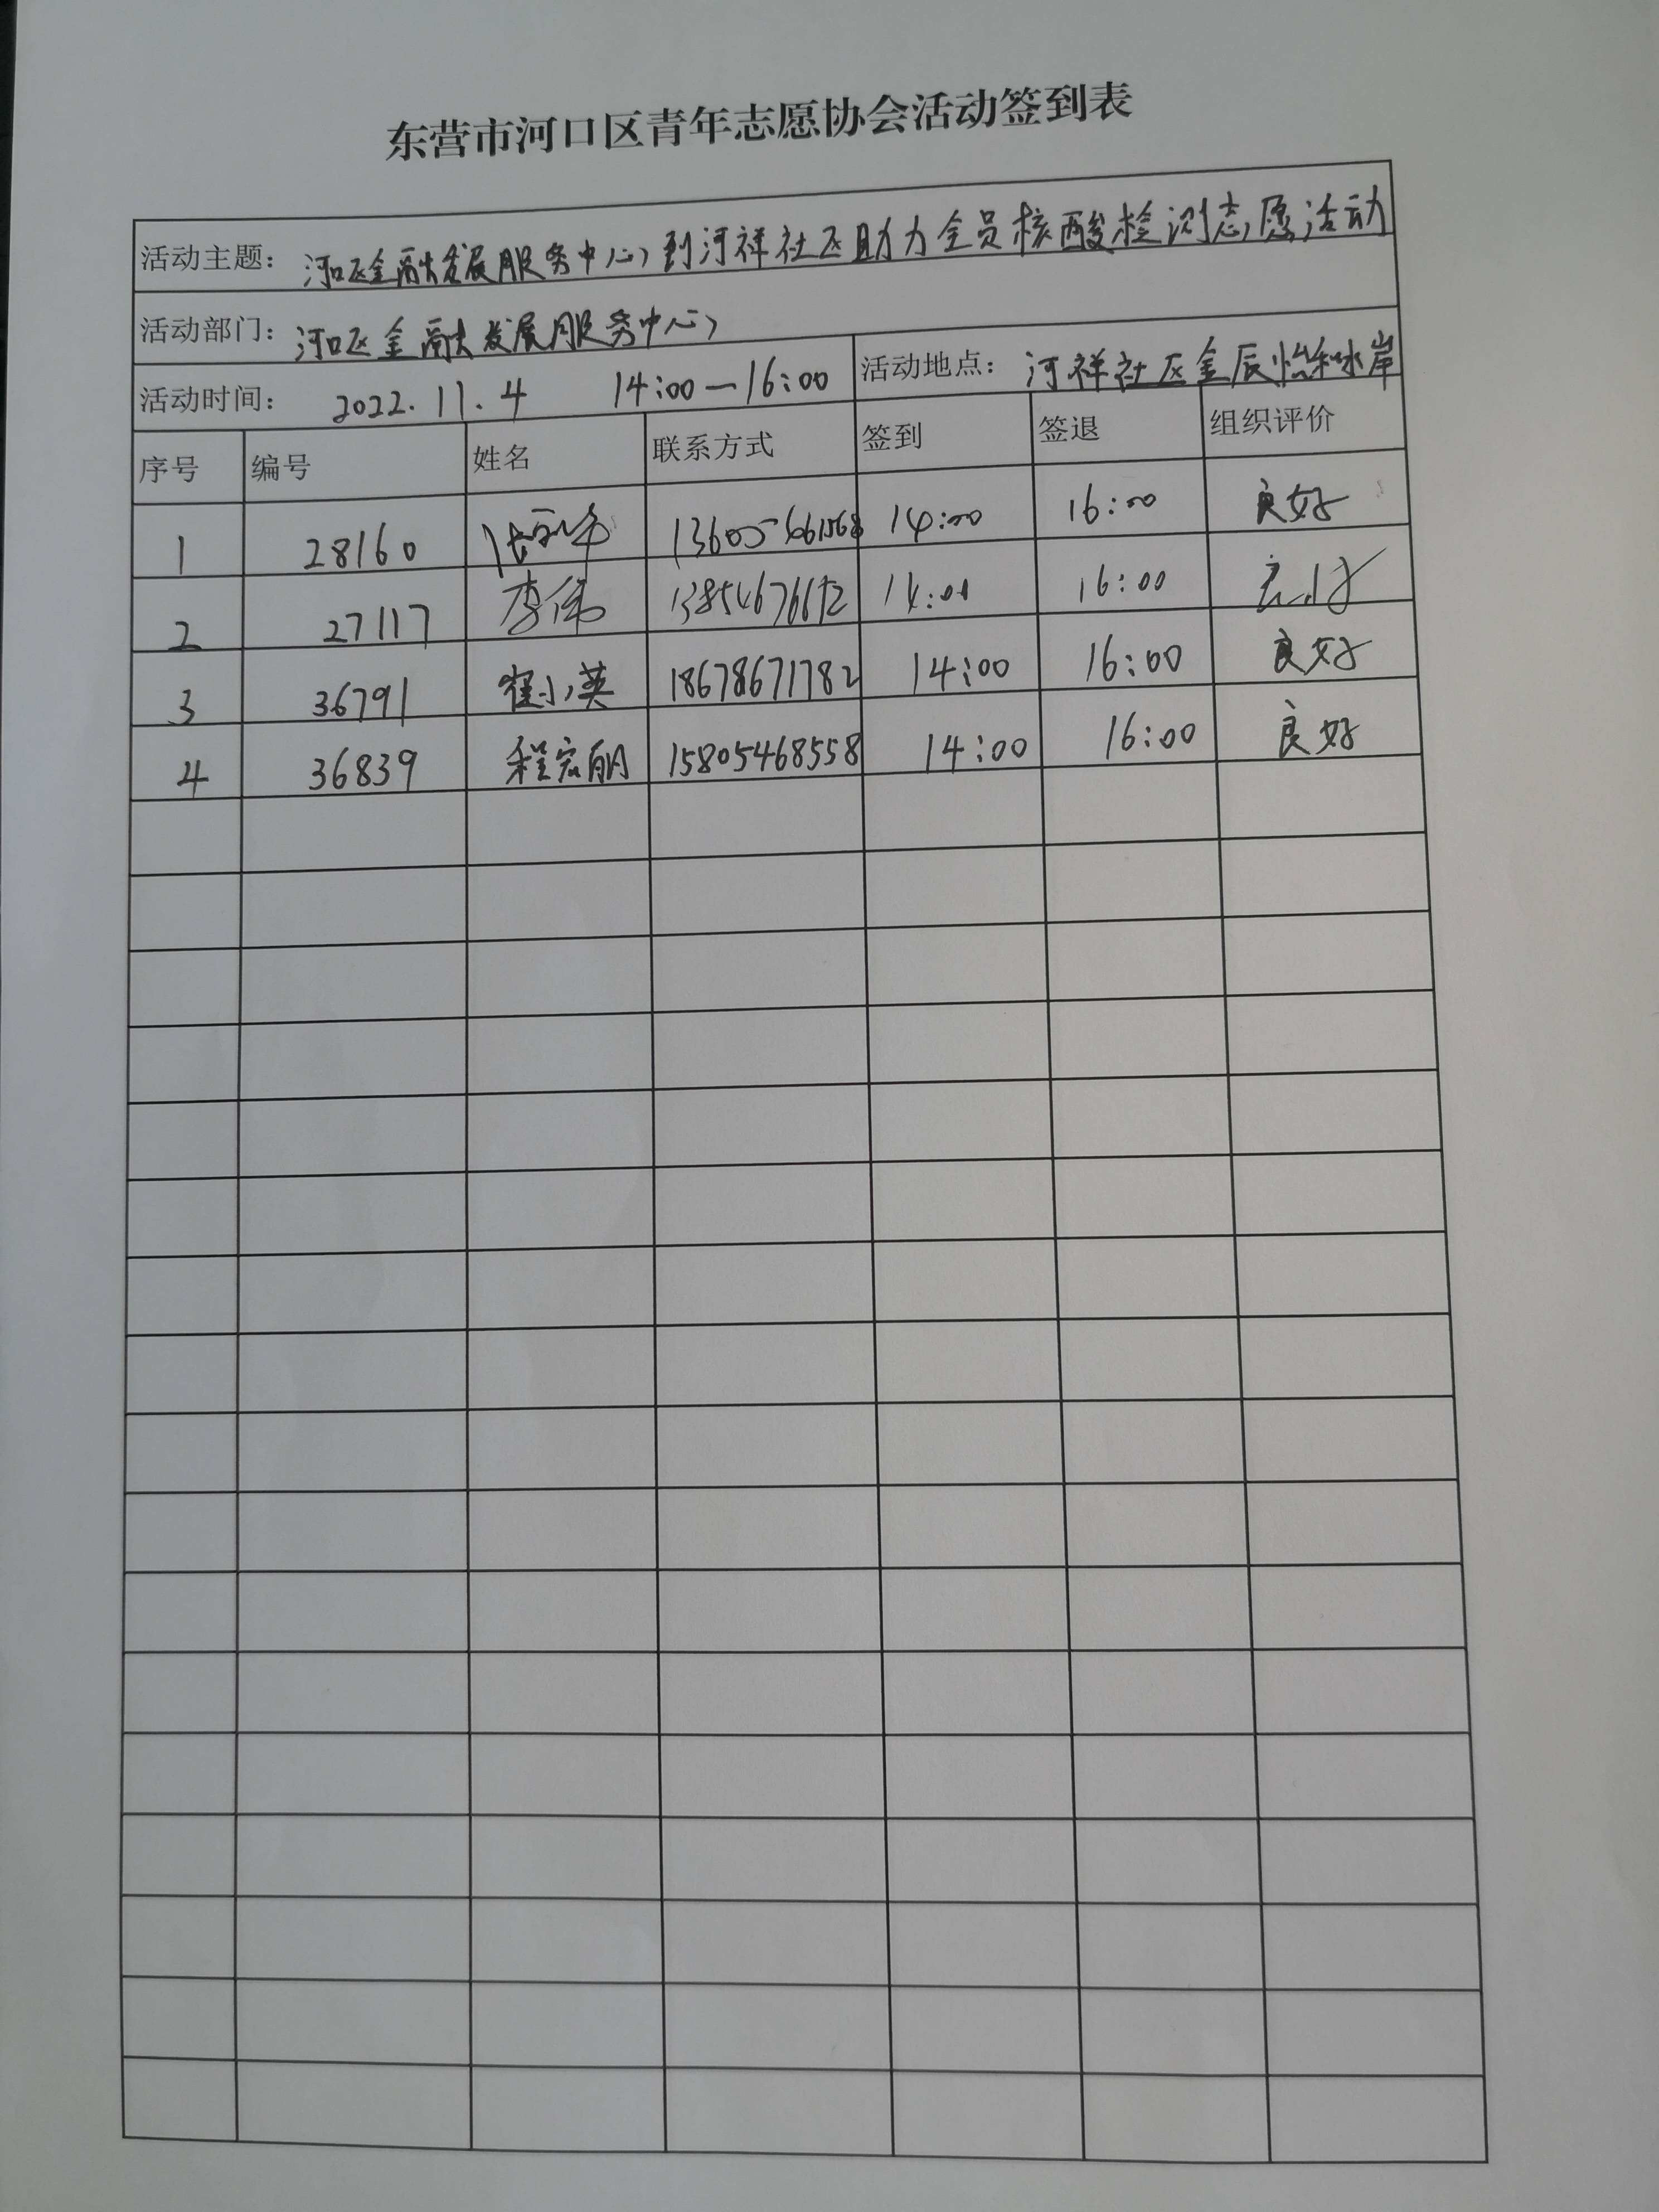 东营市河口区青年志愿协会活动签到表
活动主题：河口区金融发展服务中心到河祥社区助力全员核酸检测志愿活动
活动部门：河口区金融发展服务中心
活动时间： 2022.11.4 14:00—16:00 活动地点：河祥社区金辰怡和水岸
序号 编号 姓名 联系方式 签到 签退 组织评价
1 28160 14:00 16:00 良好
2 27117 李伟 14:00 16:00 良好
3 36791 崔小英 18678671782 14:00 16:00 良好
4 36839 程宏丽 15805468558 14:00 16:00 良好